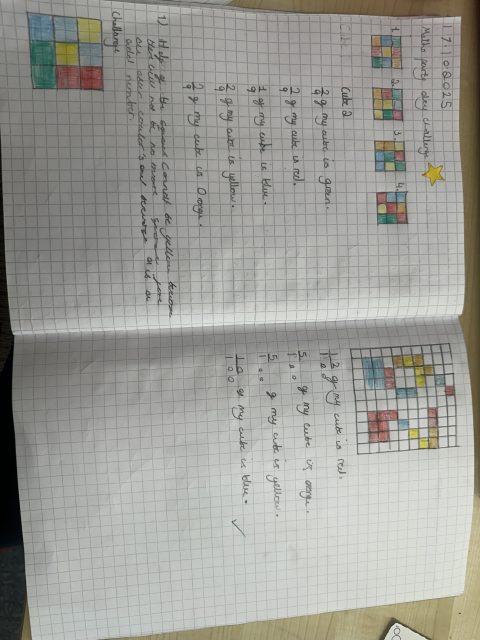 17.10.2025
Maths party day challenge
1. 2. 3. 4.
Cube 2
2/9 of my cube is green.
2/9 of my cube is red.
1/9 of my cube is blue.
2/9 of my cube is yellow.
2/9 of my cube is Orange.
1) Half of the squares cannot be yellow because
there will not be no more square
odd number.
Challenge
12/100 of my cube is red.
5/100 of my cube is orange.
5/100 of my cube is yellow.
10/100 of my cube is blue.